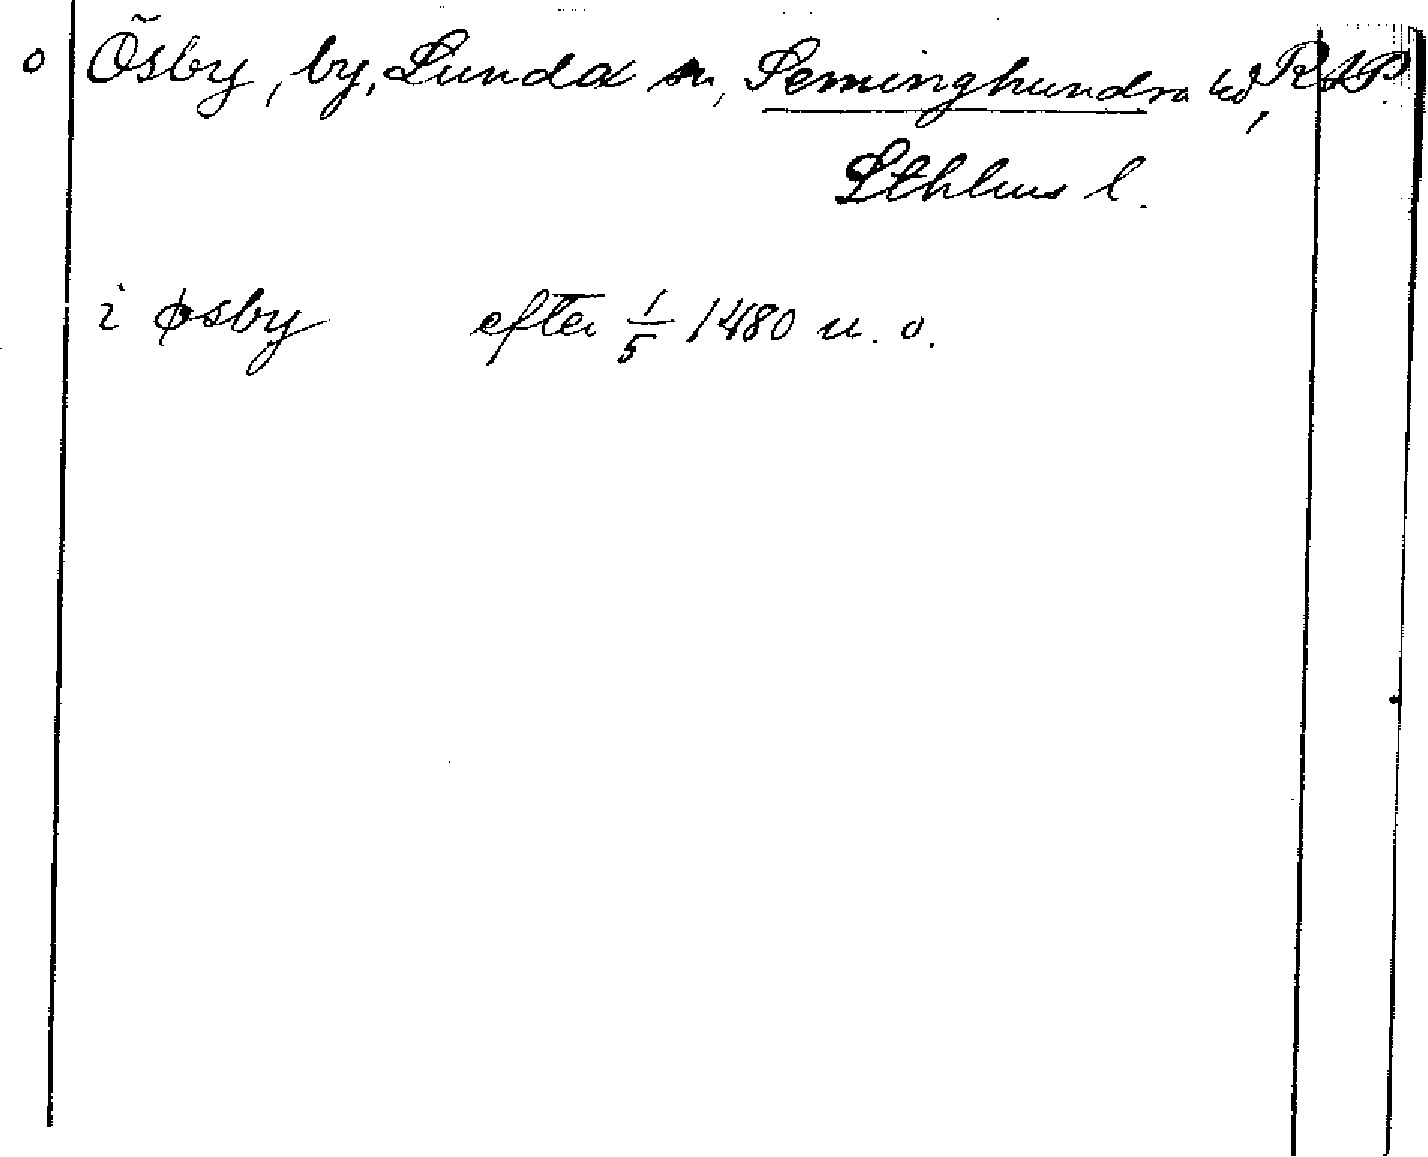 o Õsby, by, Lunda sn, Seminghundra hd, RAP.
Sthlms l.
i øsby efter 1/5 1480 u. o.